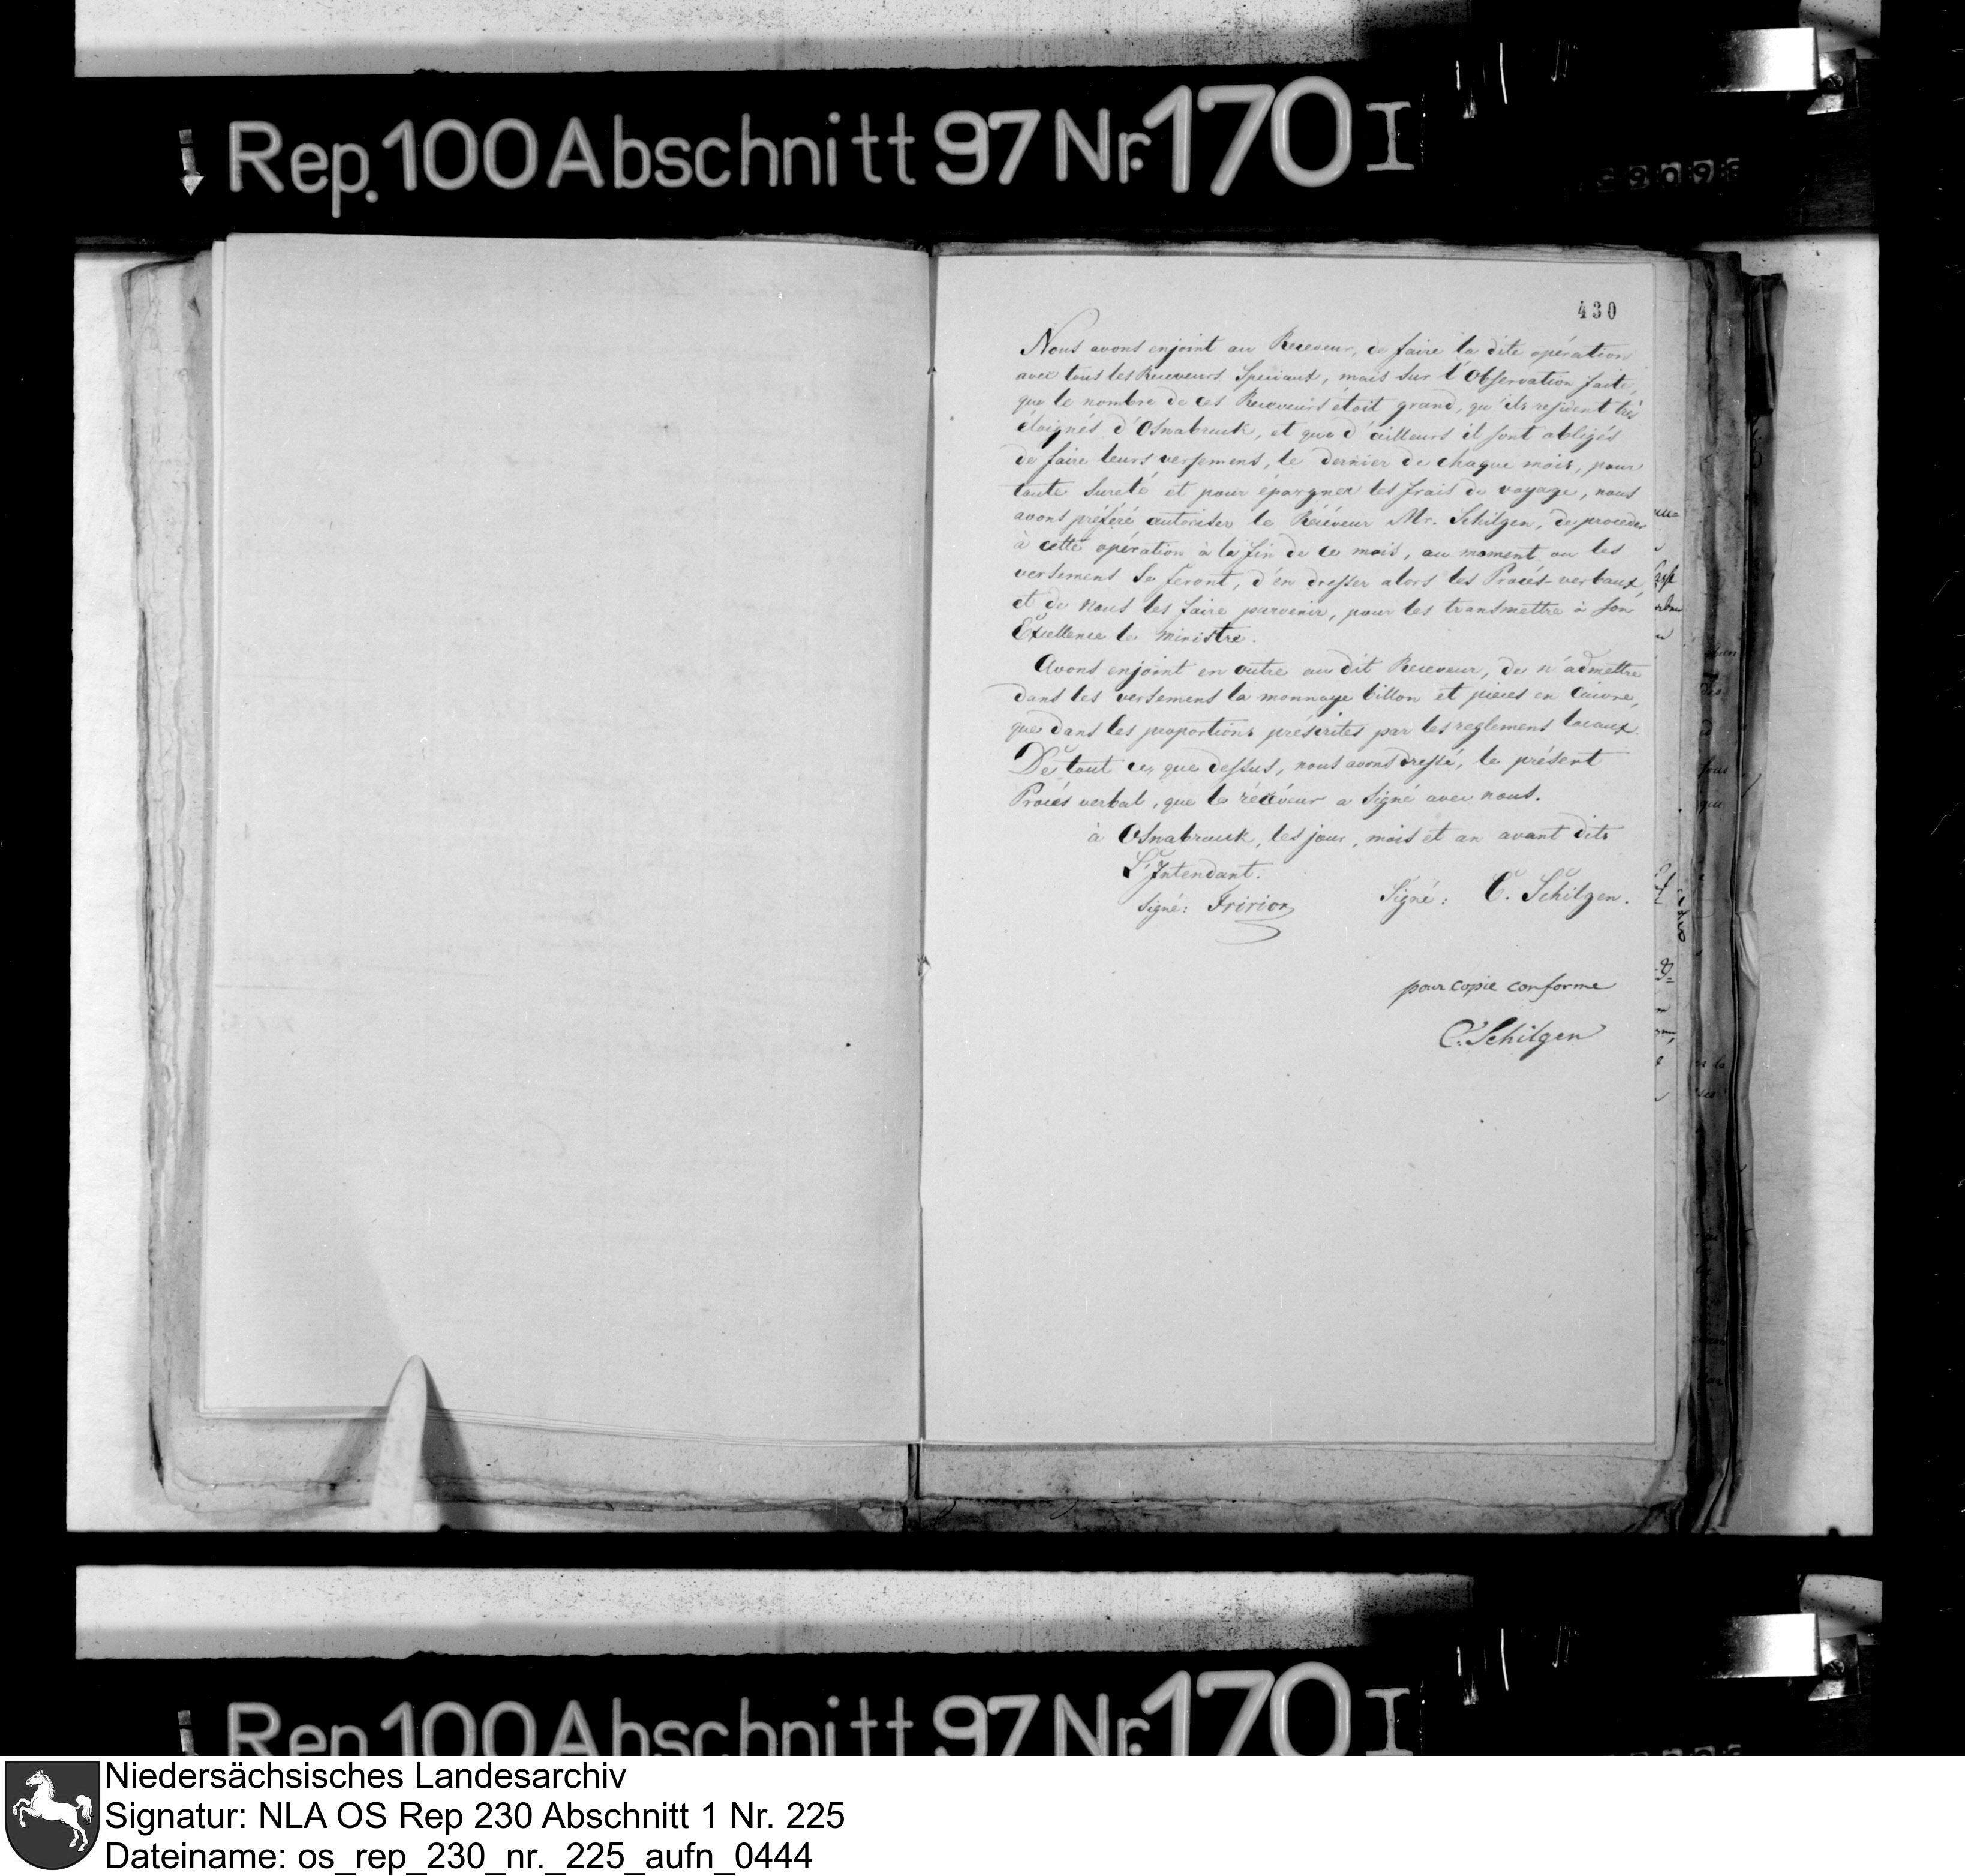 Rep. 100 Abschnitt 97 Nr. 170 I
430
Nous avons enjoint au Receveur, de faire la dite opération
avec tous les Receveurs Speciaux, mais sur l'Observation faite,
que le nombre de ces Receveurs étoit grand, qu'ils resident très
éloignés d'Osnabruck, et que d'ailleurs il sont obligés
de faire leurs versemens, le dernier de chaque mois, pour
toute sureté et pour épargner les frais de voyage, nous
avons préféré autoriser le Réceveur Mr. Schilgen, de proceder
à cette opération à la fin de ce mois, au moment ou les
versemens se feront, d'en dresser alors les Procés verbaux,
et de nous les faire parvenir, pour les transmettre à son
Excellence le ministre.
Avons enjoint en outre au dit Receveur, de n'admettre
dans les versemens la monnaye billon et pieces en Cuivre,
que dans les proportions préscrites par les reglement locaux.
De tout ce, que dessus, nous avons dressé, le présent
Procés verbal, que le récéveur a signé avec nous.
à Osnabruck, les jour, mois et an avant dits
L'Intendant.
signé: Fririon
Signé: C. Schilgen.
pour copie conforme
C. Schilgen
Rep. 100 Abschnitt 97 Nr. 170 I
Niedersächsisches Landesarchiv
Signatur: NLA OS Rep 230 Abschnitt 1 Nr. 225
Dateiname: os_rep_230_nr._225_aufn_0444